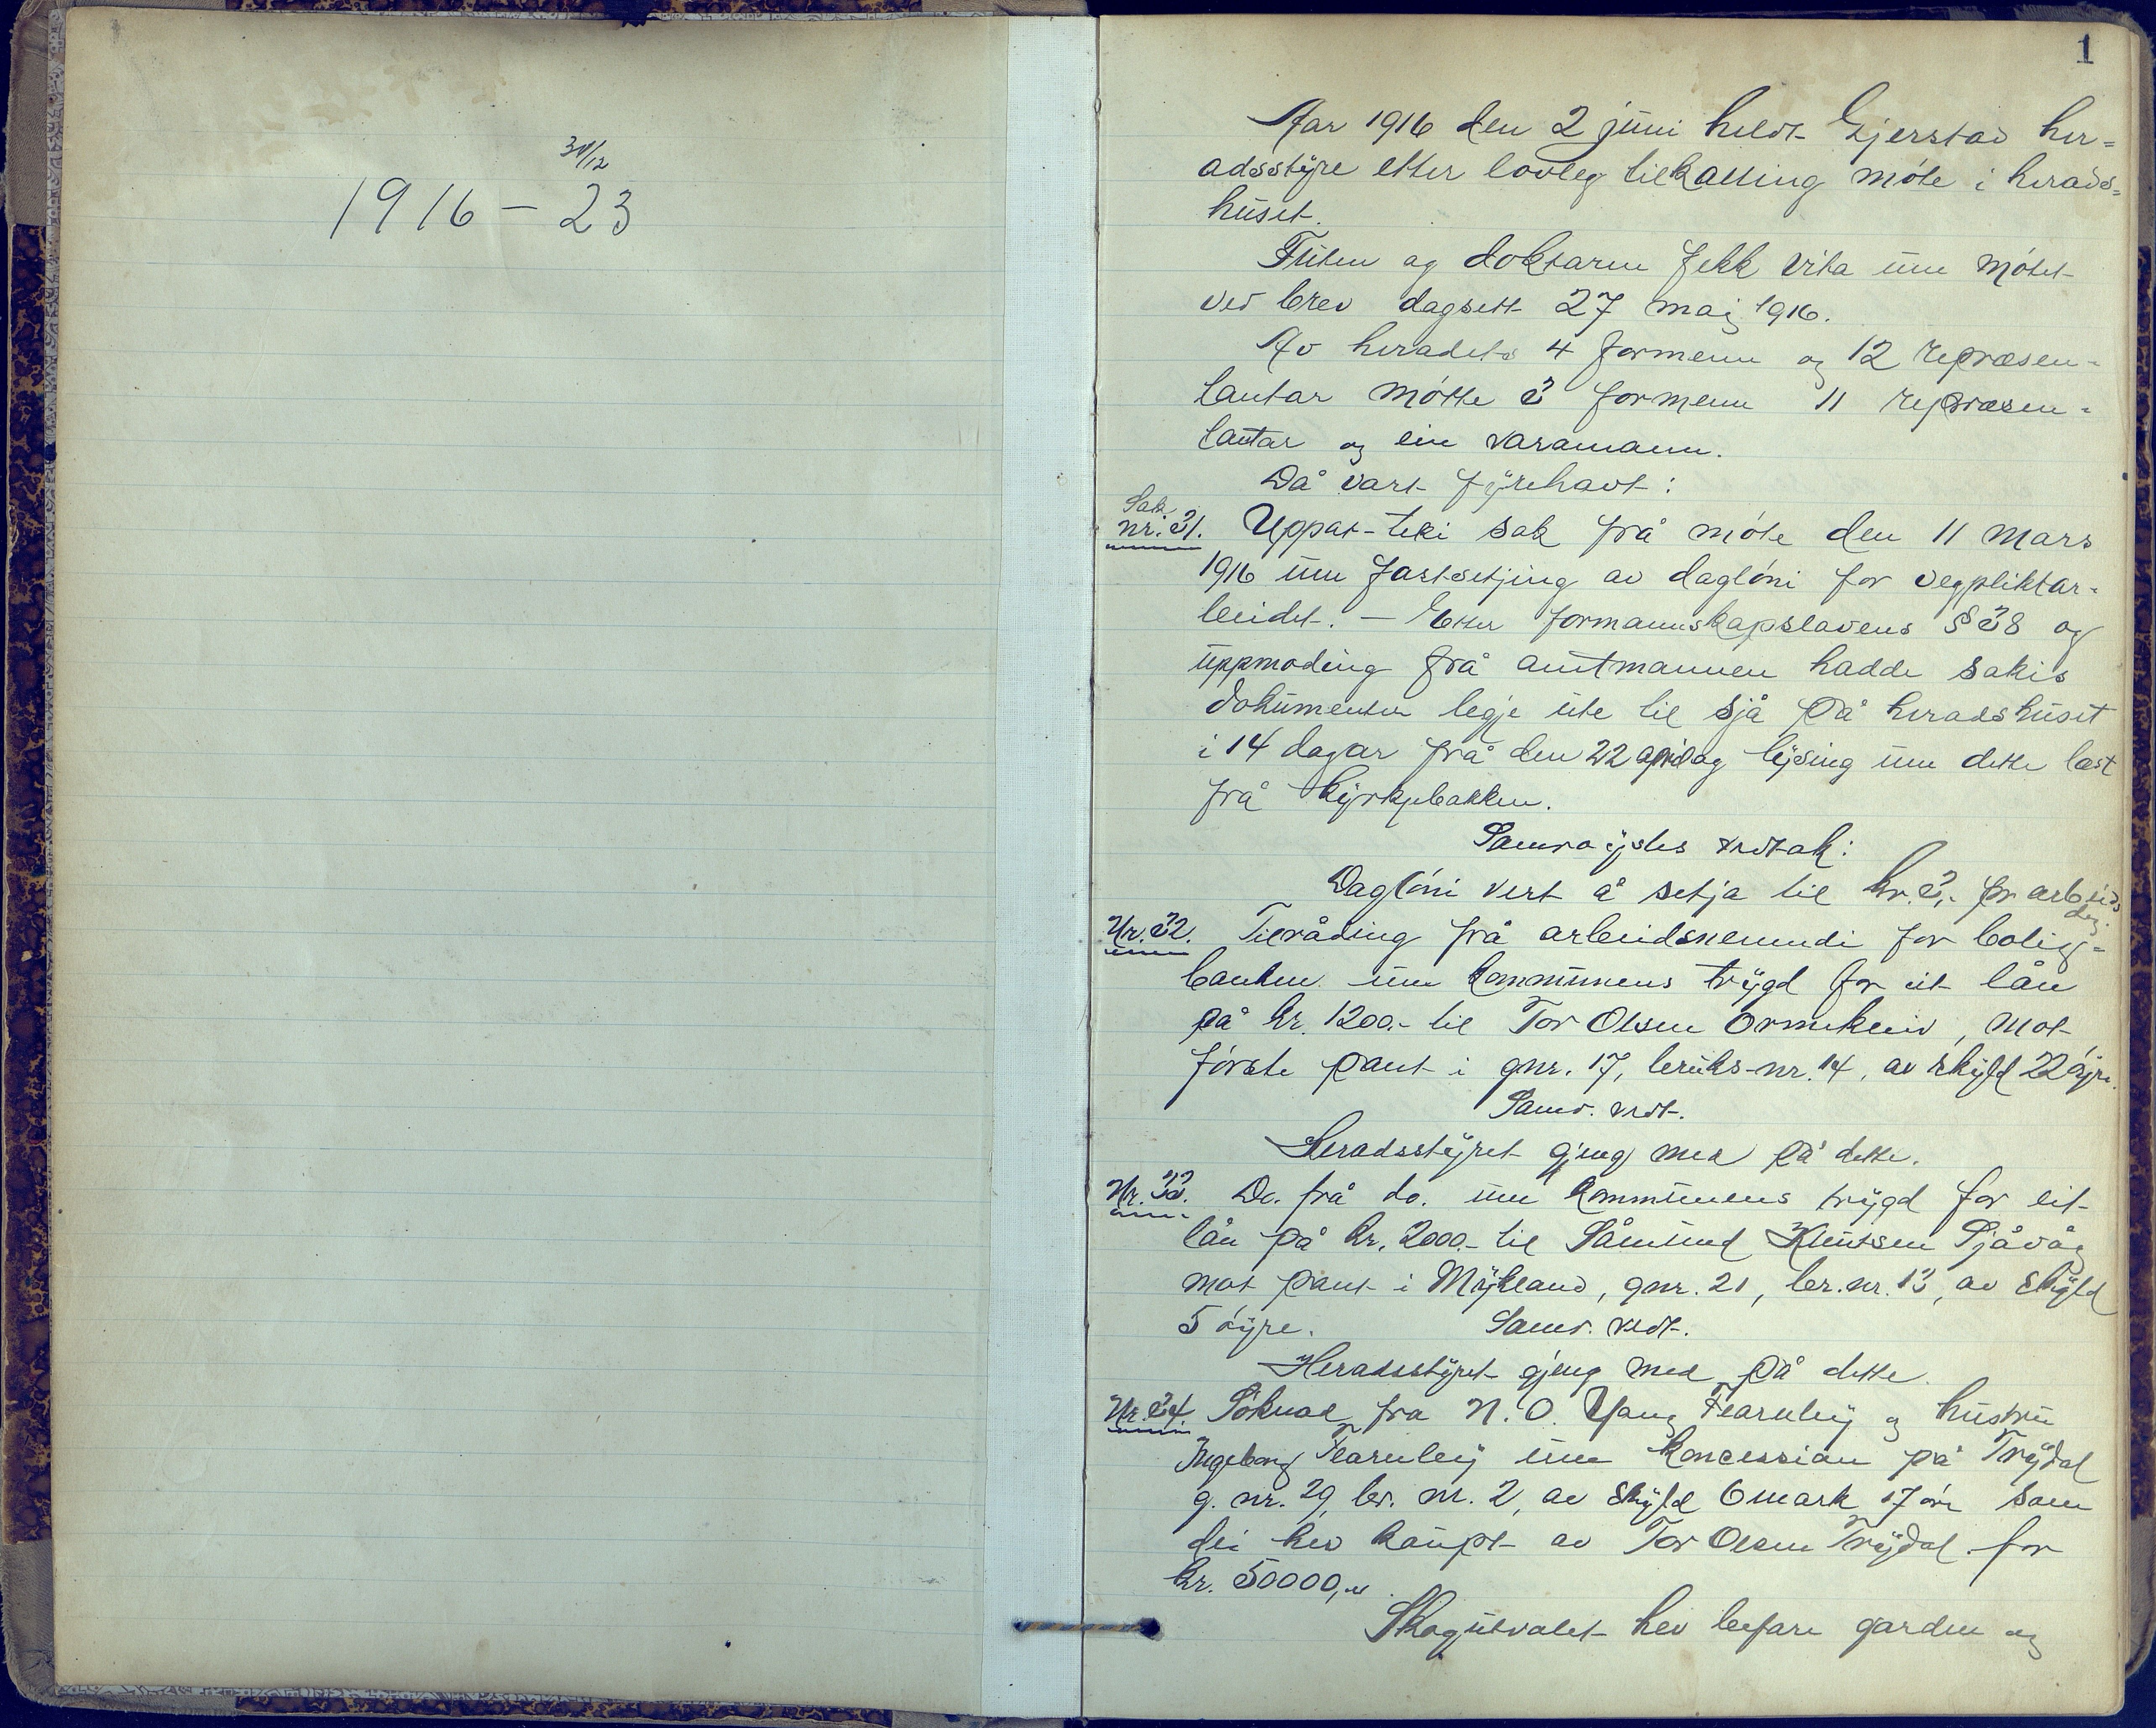 30/12
1916 – 23
1
Aar 1916 den 2 juni heldt Gjerstad her-
adsstyre etter lovleg tilkalling møte i herads-
huset.
Futen og doktaren fekk vita um møtet
ved brev dagsett 27 mai 1916.
Av heradets 4 formenn og 12 repræsen-
tantar møtte 3 formenn 11 repræsen-
tantar og ein varamann.
Då vart fyrehavt:
Sak
nr. 31. Uppat-teki sak frå møte den 11 mars
1916 um fastsetjing av dagløni for vegpliktar-
beidet. – Etter formannskapslovens § 38 og
uppmoding frå amtmannen hadde sakis
dokumenter legje ute til sjå på heradshuset
i 14 dagar frå den 22 april og lysing um dette læst
frå kyrkjebakken.
Samrøystes vedtak:
Dagløni vert å setja til kr. 3,- pr arbeids
dag
Nr. 32. Tilråding frå arbeidsnemndi for bolig-
banken um kommunens trygd for eit lån
på kr. 1200.- til Tor Olsen Ormekleiv, mot
første pant i gnr. 17, bruks-nr. 14, av skyld 22 øyre.
Samr. vedt.
Heradsstyret gjeng med på dette.
Nr. 33. Do. frå do. um kommunens trygd for eit
lån på kr. 2000.- til Såmund Knutsen Sjåvåg
mot pant i Mykland, gnr. 21, br.nr. 13, av skyld
5 øyre. Samr. vedt.
Heradsstyret gjeng med på dette.
Nr. 34. Søknad fra N. O. Yang Fearnley og hustru
Ingeborg Fearnley um koncession på Trydal
g. nr. 29, br. nr. 2, av skyld 6 mark 17 øre som
dei hev kaupt av Tor Olsen Trydal for
kr. 50000,-
Skogutvalet hev befare garden og